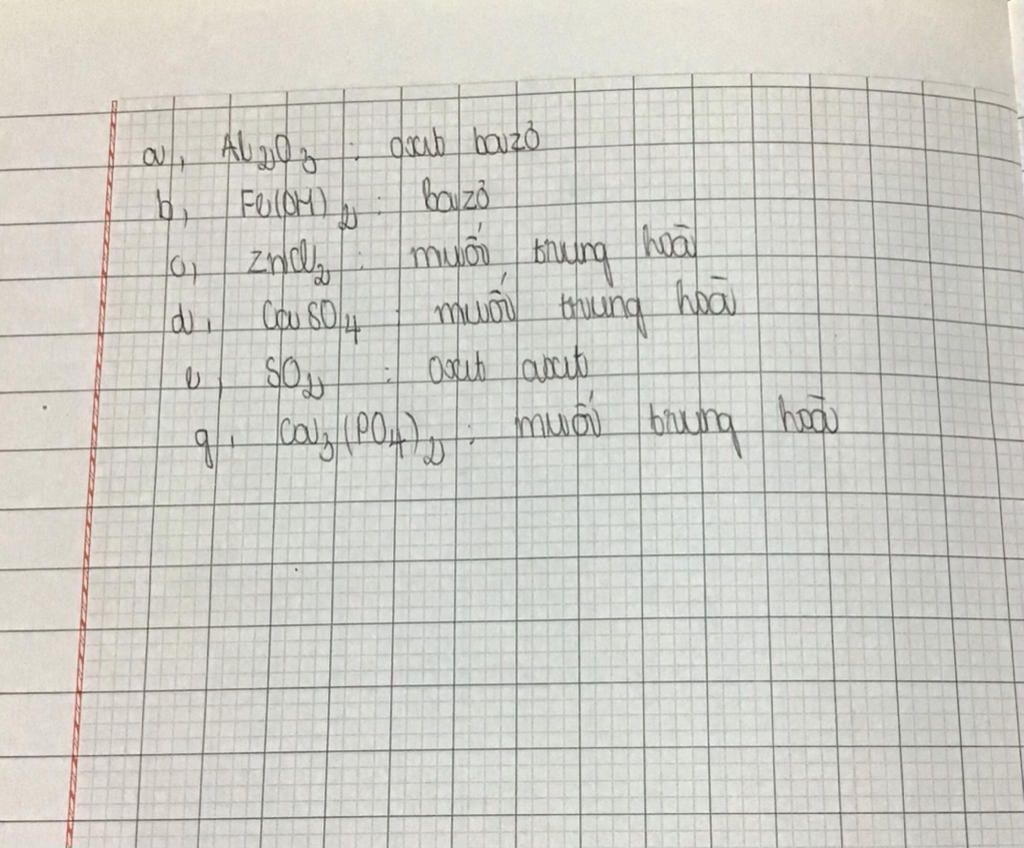 a, Al₂O₃ : oxit bazơ
b, Fe(OH)₂ : bazơ
c, ZnCl₂ : muối trung hoà
d, CaSO₄ : muối trung hoà
e, SO₂ : oxit axit
g, Ca₃(PO₄)₂ : muối trung hoà